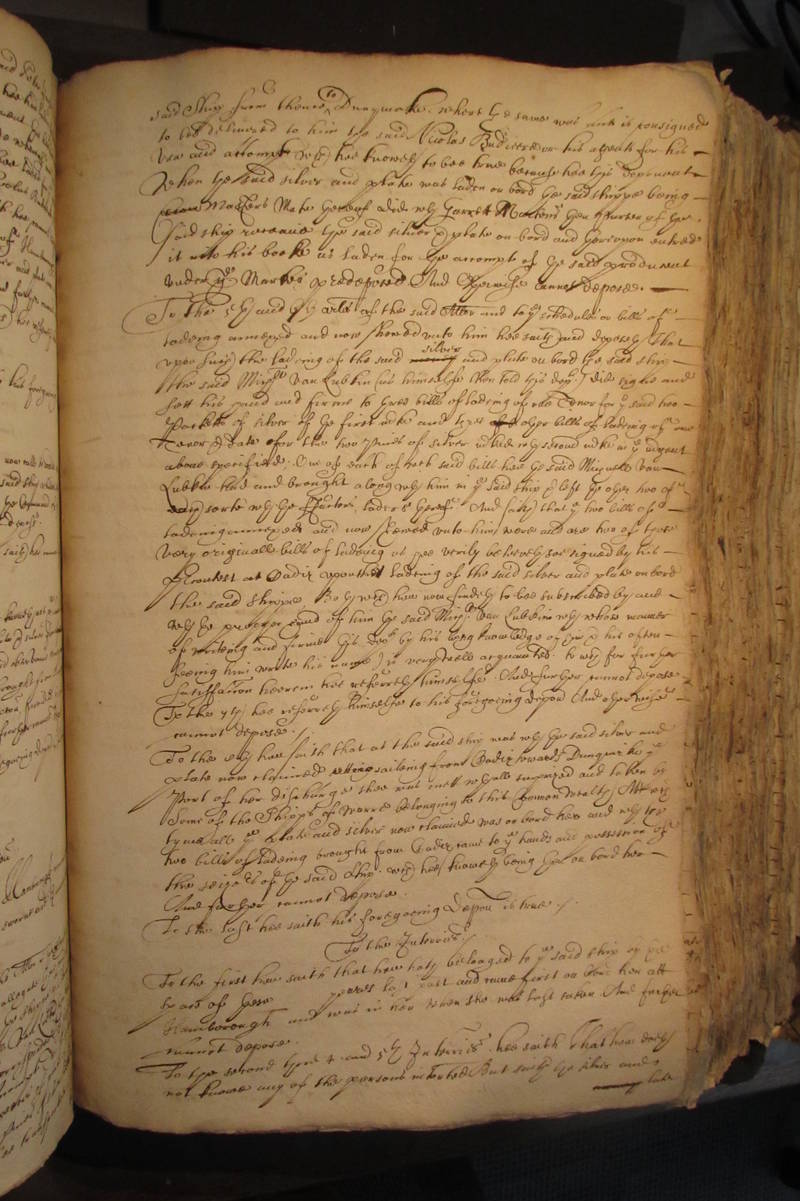 said Ship from thence to Dunqwerke where the same was and is consigned
to be delivered to him the said Nicolas Budiere or his assents for his
use and accompt wch hee knoweth to bee true because hee this deponent
when the said silver and plate was laden on bord the said shipp being
Masters Mate thereof did wth Garrett Martens then Pursser of the
said ship receave the said silver & plate on bord and thereupon entred
it into his booke as laden for the accompt of the said producent
under the Markes predeposed And otherwise cannot depose.
To the 5th and 6th arles of the said Allon and to ye schedules or bills of
ladeing annexed and now shewed unto him hee saith and deposeth That
upon the ladeing of the said silver and plate on bord the said ship
the said Van Lubkin himselfe told this dept) did signe and
sett his hand and firme to three bills of ladeing of one Tenor for ye said two
Parcells of silver of the first and to three other bills of ladeing of one
tenor & date for the two of silver
above specified: One of each of wch said bills hee ye said Miguell Van
Lubkin had and brought along wth him in ye said ship & left ye other two of
sorte wth the Factors laders thereof And saith that ye two bills of
ladeing annexed and now shewed unto him were and are two of those
very originall bills of ladeing as hee verily beleeveth soe signed by his
Contest at Cadiz upon the ladeing of the said silver and plate on bord
the said shippe Both wch hee now findeth to bee subscribed by and
wth the proper hand of him the said Van Lubkin wth whose manner
of writeing and firmeing this dept by his long knowledge of him & his often
seeing him write his name) is very well acquainted: to wch for further
satisfaction heerein hee referreth himselfe. And further cannot depose
To the 7th hee referreth himselfe to his foregoeing deposn And otherwise
cannot depose.
To the 8th hee saith that as the said ship was wth the said silver and
plate now claimed saileing from Cadiz towards Dunqwerke ye
Port of her discharge shee was mett wthall surprized and taken by
some of the Shipps of Warre belonging to this Common Wealth; Att wch
tyme all ye plate and silver now claimed was on bord her and wth the
two bills of ladeing brought from Cadiz came to ye hands and possession of
the seizers of the said ship. wch hee knoweth being then on bord her
And further cannot depose.
To the last hee saith his foregoeing deposn is true.
To the Interries
To the first hee saith that hee hath belonged to ye said ship
yeares last past and came first on bord her att
Hamborough and was in her when shee was last taken And further
cannot depose.
To the second third 4 and 5th Interries hee saith That hee doth
not knowe any of the persons interrted But saith the silver and
plate